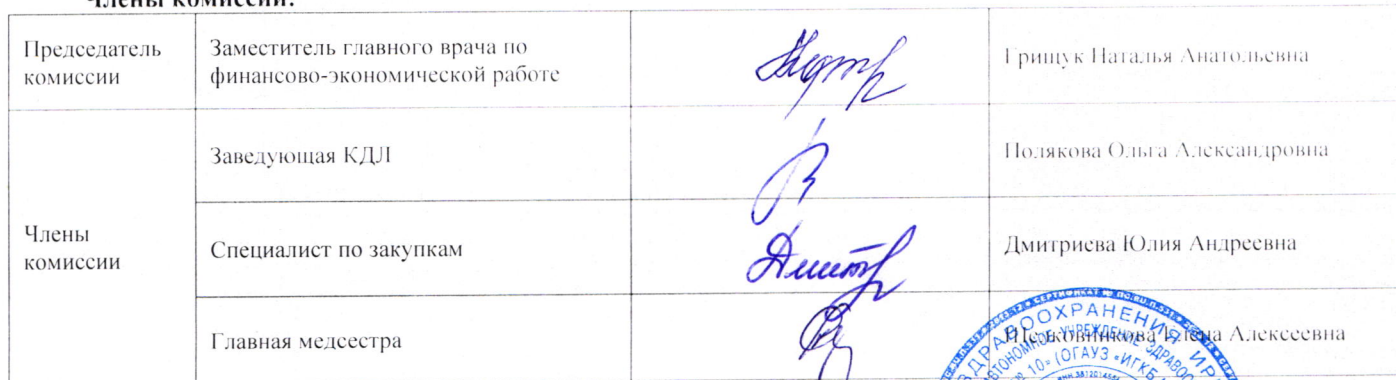 Члены комиссии:
Председатель комиссии
Заместитель главного врача по финансово-экономической работе
Грищук Наталья Анатольевна
Члены комиссии
Заведующая КДЛ
Полякова Ольга Александровна
Специалист по закупкам
Дмитриева Юлия Андреевна
Главная медсестра
Алексеевна
ЗДРАВООХРАНЕНИЯ
УЧРЕЖДЕНИЕ
(ОГАУЗ «ИГКБ